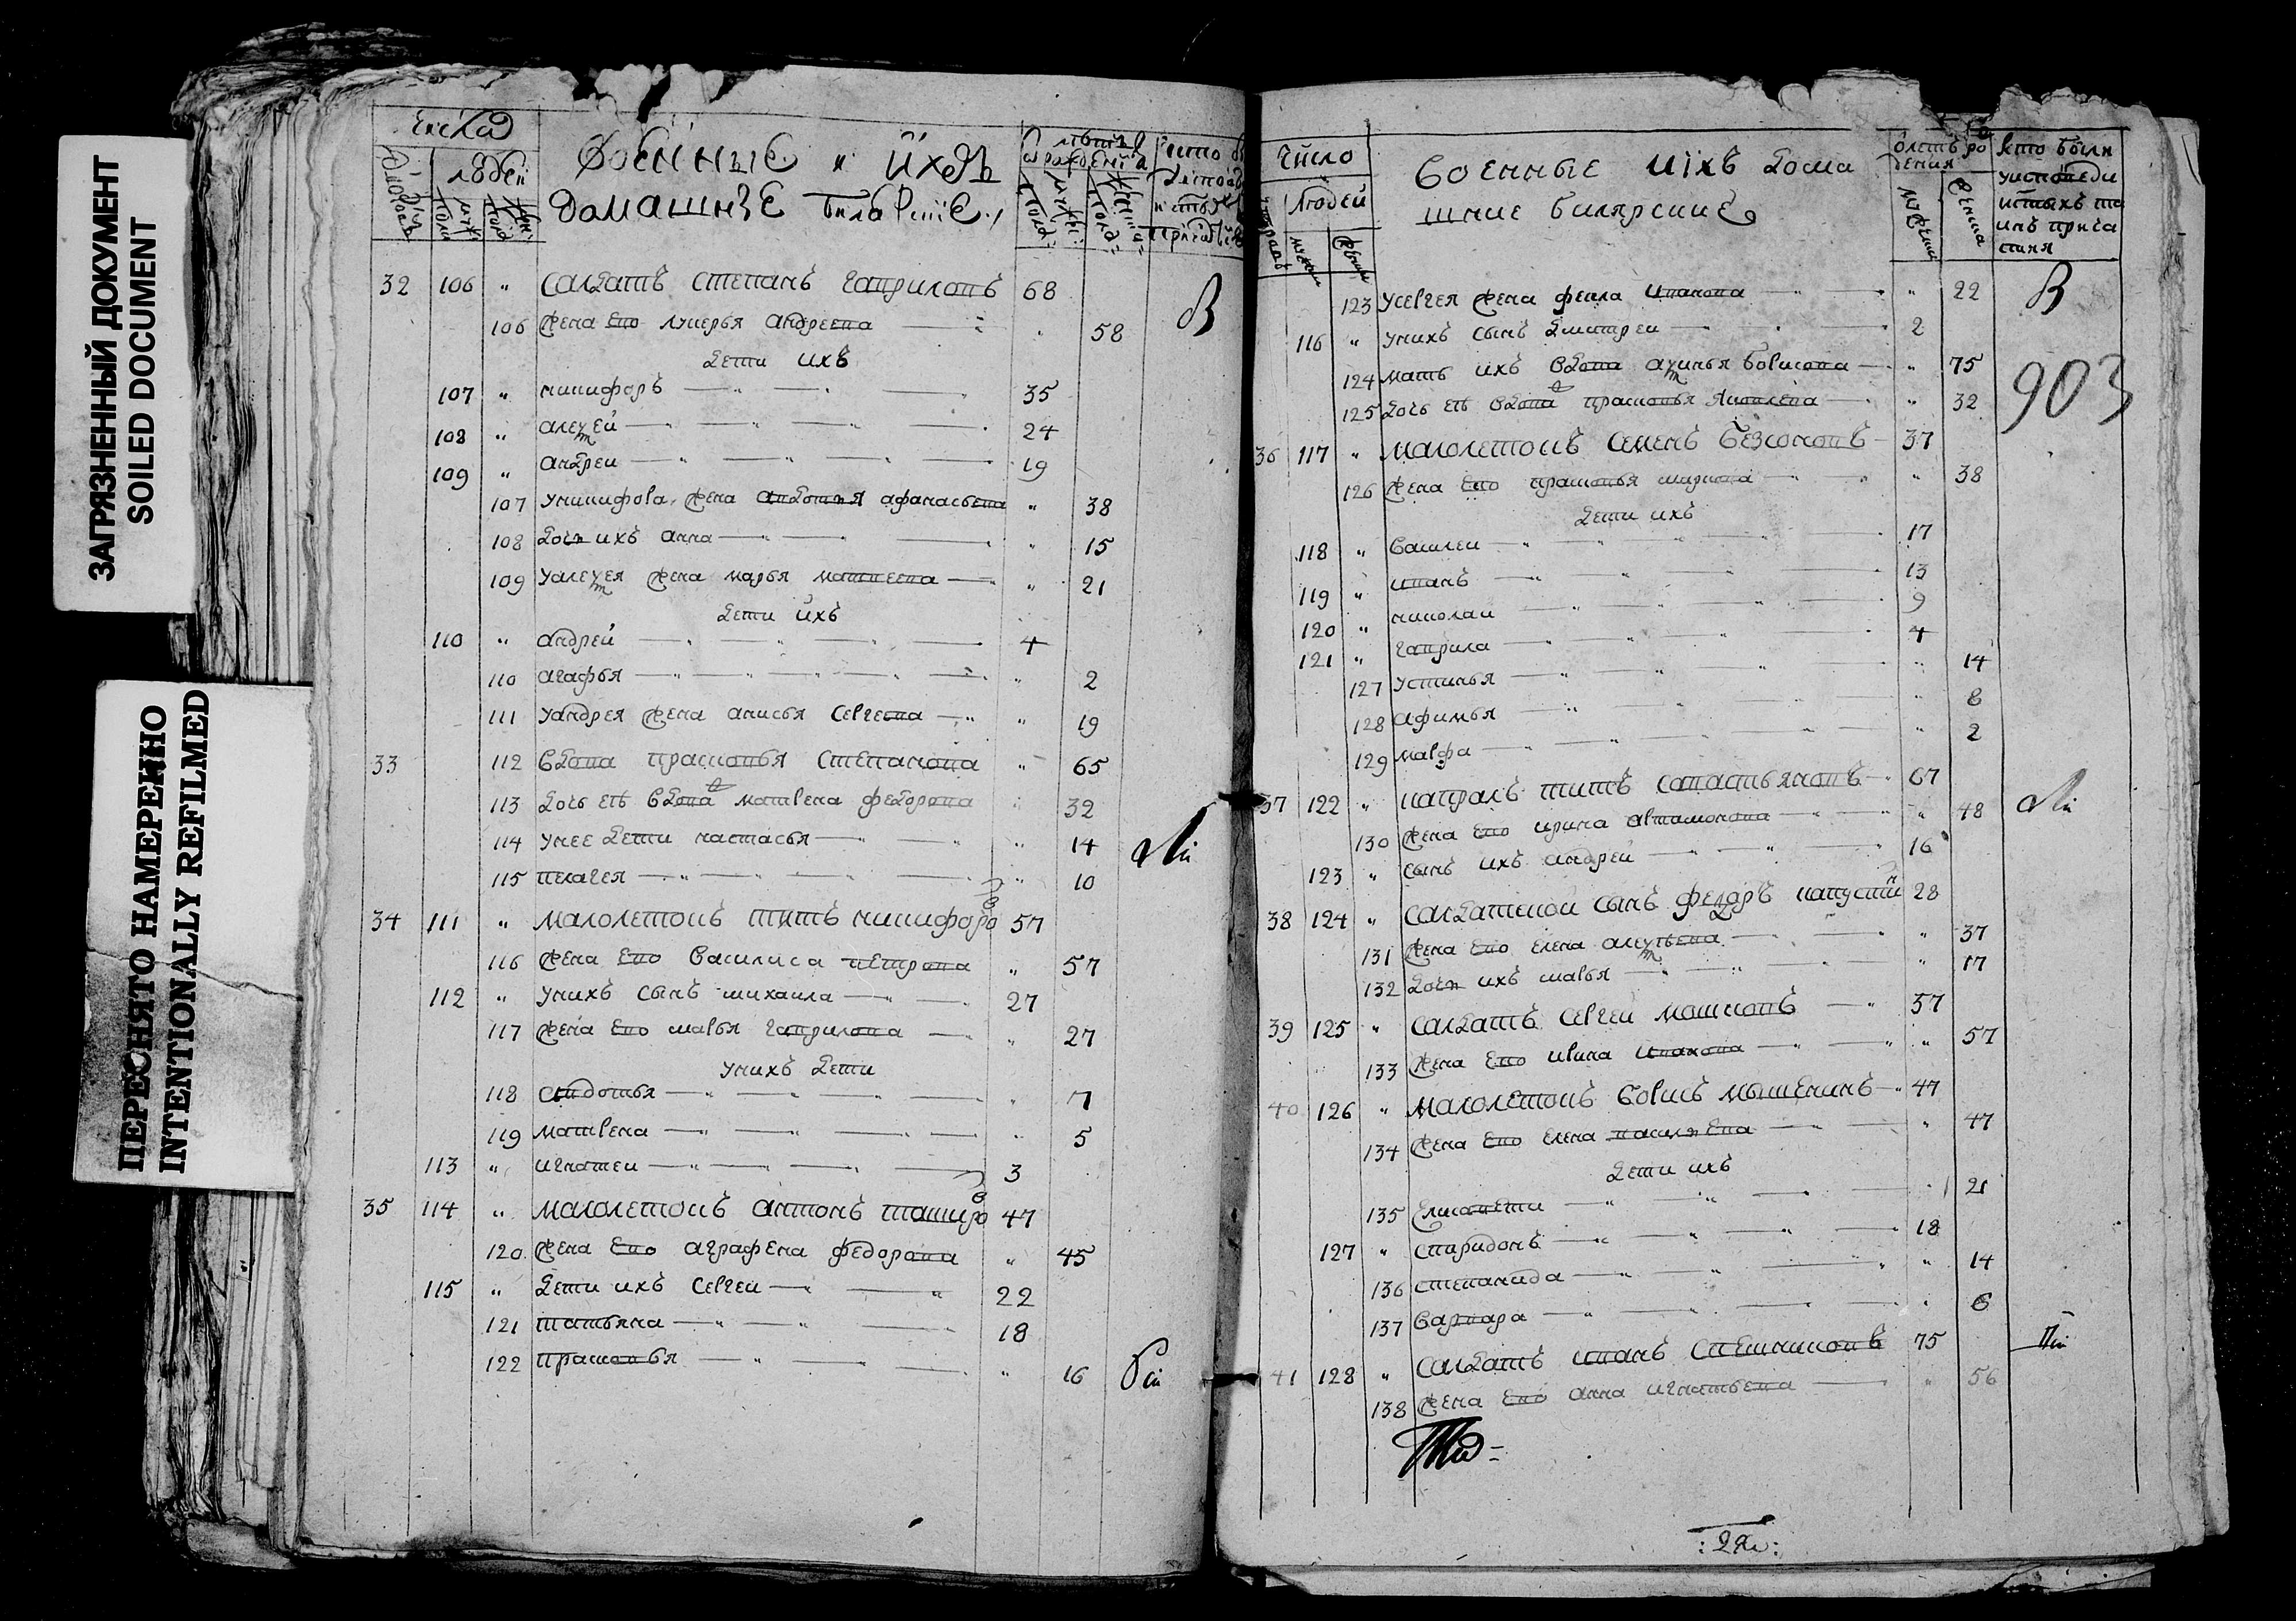 ЗАГРЯЗНЕННЫЙ ДОКУМЕНТ
SOILED DOCUMENT
ПЕРЕСНЯТО НАМЕРЕННО
INTENTIONALLY REFILMED
людей
военные и ихъ
домашнѣе билярские
32 106 " салдатъ степанъ гавриловъ 68
106 жена ево лукерья андреева " 58
дети ихъ
107 " никифоръ 35
108 " алексей 24
109 " андреи 19
107 уникифора жена авдотья афанасьева " 38
108 дочь ихъ анна " 15
109 уалексея жена марья матвеева " 21
дети ихъ
110 " андрей 4
110 агафья " 2
111 уандрея жена анисья сергеева " 19
33 112 вдова прасковья степанова " 65
113 дочь еѣ вдова матрена федорова " 32
114 унее дети настасья " 14
115 пелагея " 10
34 111 " малолетокъ титъ никифоровъ 57
116 жена ево василиса петрова " 57
112 " унихъ сынъ михаила 27
117 жена ево марья гаврилова " 27
унихъ дети
118 авдотья " 7
119 матрена " 5
113 " игнатеи 3
35 114 " малолетокъ антонъ 47
120 жена ево аграфена федорова " 45
115 " дети ихъ сергеи 22
121 татьяна 18
122 прасковья " 16
число
людей
военные иихъ дома
шние билярские
отъ рождения
кто были
уисповеди
исвятыхъ та
инъ прича
стия
123 усергея жена фекла иванова " 22
116 " унихъ сынъ дмитреи 2
903
124 мать ихъ вдова аксинья борисова " 75
125 дочь еѣ вдова прасковья яковлева " 32
36 117 " малолетокъ семенъ безсоновъ 37
126 жена ево прасковья маркова " 38
дети ихъ
118 " василеи 17
119 " иванъ 13
120 " николаи 9
121 " гаврила 4
127 устинья " 14
128 афимья " 8
129 марфа " 2
37 122 " капралъ титъ савастьяновъ 67
130 жена ево ирина артамонова " 48
123 " сынъ ихъ андреи 16
38 124 " салдатской сынъ федоръ капустинъ 28
131 жена ево елена алексеева " 37
132 дочь ихъ марья " 17
39 125 " салдатъ сергеи машковъ 57
133 жена ево ирина иванова " 57
40 126 " малолетокъ борисъ 47
134 жена ево елена васильева " 47
дети ихъ
135 елисавети " 21
127 " спиридонъ 18
136 степанида " 14
137 варвара " 6
41 128 " салдатъ иванъ 75
138 жена ево анна игнатьева " 56